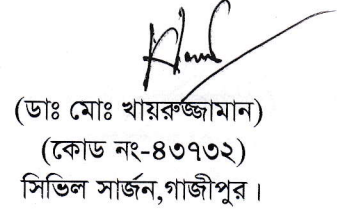 (ডাঃ মোঃ খায়রুজ্জামান)
(কোড নং-৪৩৭৩২)
সিভিল সার্জন,গাজীপুর।